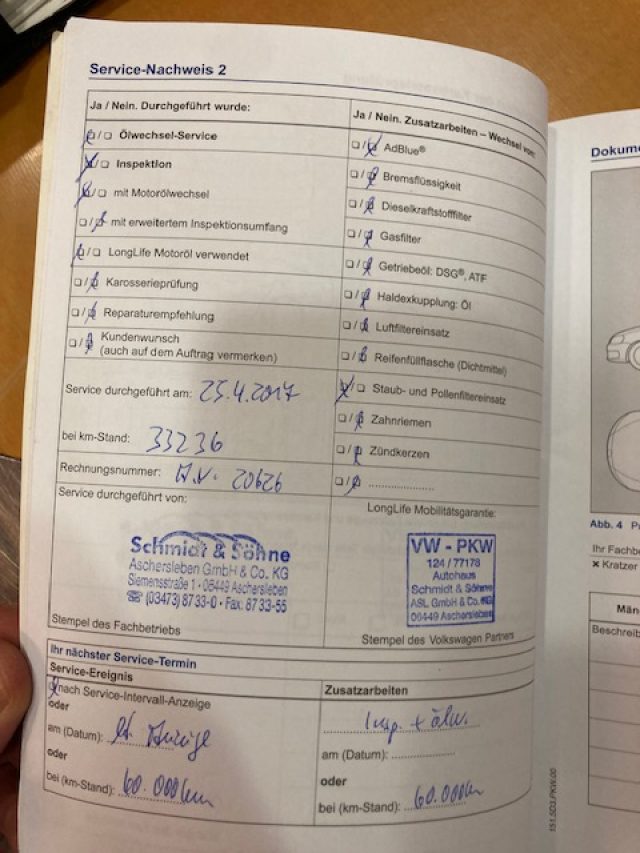 Service-Nachweis 2
Ja / Nein. Durchgeführt wurde:
Ölwechsel-Service
Inspektion
mit Motorölwechsel
mit erweitertem Inspektionsumfang
LongLife Motoröl verwendet
Karosserieprüfung
Reparaturempfehlung
Kundenwunsch
(auch auf dem Auftrag vermerken)
Service durchgeführt am: 25.4.2017
bei km-Stand: 33236
Rechnungsnummer: A.V. 20626
Service durchgeführt von:
Schmidt & Söhne
Aschersleben GmbH & Co. KG
Siemensstraße 1 · 06449 Aschersleben
☎ (03473) 87 33-0 · Fax: 87 33-55
Stempel des Fachbetriebs
Ja / Nein. Zusatzarbeiten – Wechsel von:
AdBlue®
Bremsflüssigkeit
Dieselkraftstofffilter
Gasfilter
Getriebeöl: DSG®, ATF
Haldexkupplung: Öl
Luftfiltereinsatz
Reifenfüllflasche (Dichtmittel)
Staub- und Pollenfiltereinsatz
Zahnriemen
Zündkerzen
LongLife Mobilitätsgarantie:
VW - PKW
124 / 77178
Autohaus
Schmidt & Söhne
ASL GmbH & Co. KG
06449 Aschersleben
Stempel des Volkswagen Partners
Ihr nächster Service-Termin
Service-Ereignis
nach Service-Intervall-Anzeige
oder
am (Datum): lt. Anzeige
oder
bei (km-Stand): 60.000km
Zusatzarbeiten
Insp. + Ölw.
am (Datum):
oder
bei (km-Stand): 60.000km
151.5D3.PKW.00
Dokume
Abb. 4
Ihr Fachbe
× Kratzer
Män
Beschreib